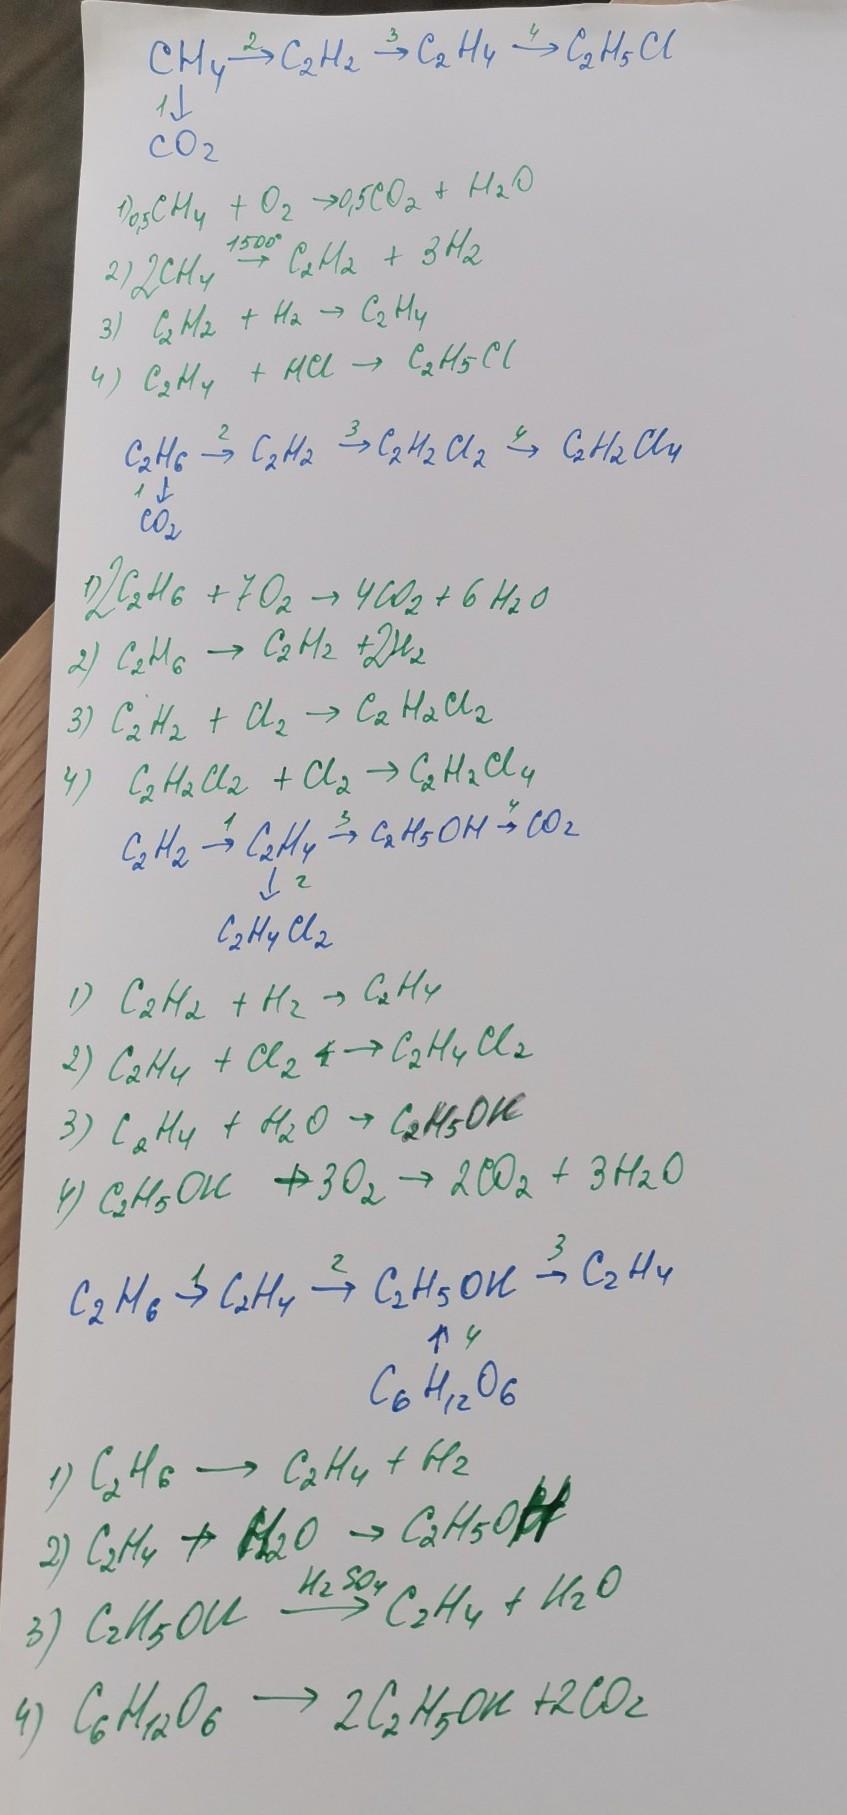 CH4 2→ C2H2 3→ C2H4 4→ C2H5Cl
1↓
CO2
1) 0,5CH4 + O2 → 0,5CO2 + H2O
2) 2CH4 1500°→ C2H2 + 3H2
3) C2H2 + H2 → C2H4
4) C2H4 + HCl → C2H5Cl
C2H6 2→ C2H2 3→ C2H2Cl2 4→ C2H2Cl4
1↓
CO2
1) 2C2H6 + 7O2 → 4CO2 + 6H2O
2) C2H6 → C2H2 + 2H2
3) C2H2 + Cl2 → C2H2Cl2
4) C2H2Cl2 + Cl2 → C2H2Cl4
C2H2 1→ C2H4 3→ C2H5OH 4→ CO2
↓ 2
C2H4Cl2
1) C2H2 + H2 → C2H4
2) C2H4 + Cl2 → C2H4Cl2
3) C2H4 + H2O → C2H5OH
4) C2H5OH + 3O2 → 2CO2 + 3H2O
C2H6 1→ C2H4 2→ C2H5OH 3→ C2H4
↑ 4
C6H12O6
1) C2H6 → C2H4 + H2
2) C2H4 + H2O → C2H5OH
3) C2H5OH H2SO4→ C2H4 + H2O
4) C6H12O6 → 2C2H5OH + 2CO2